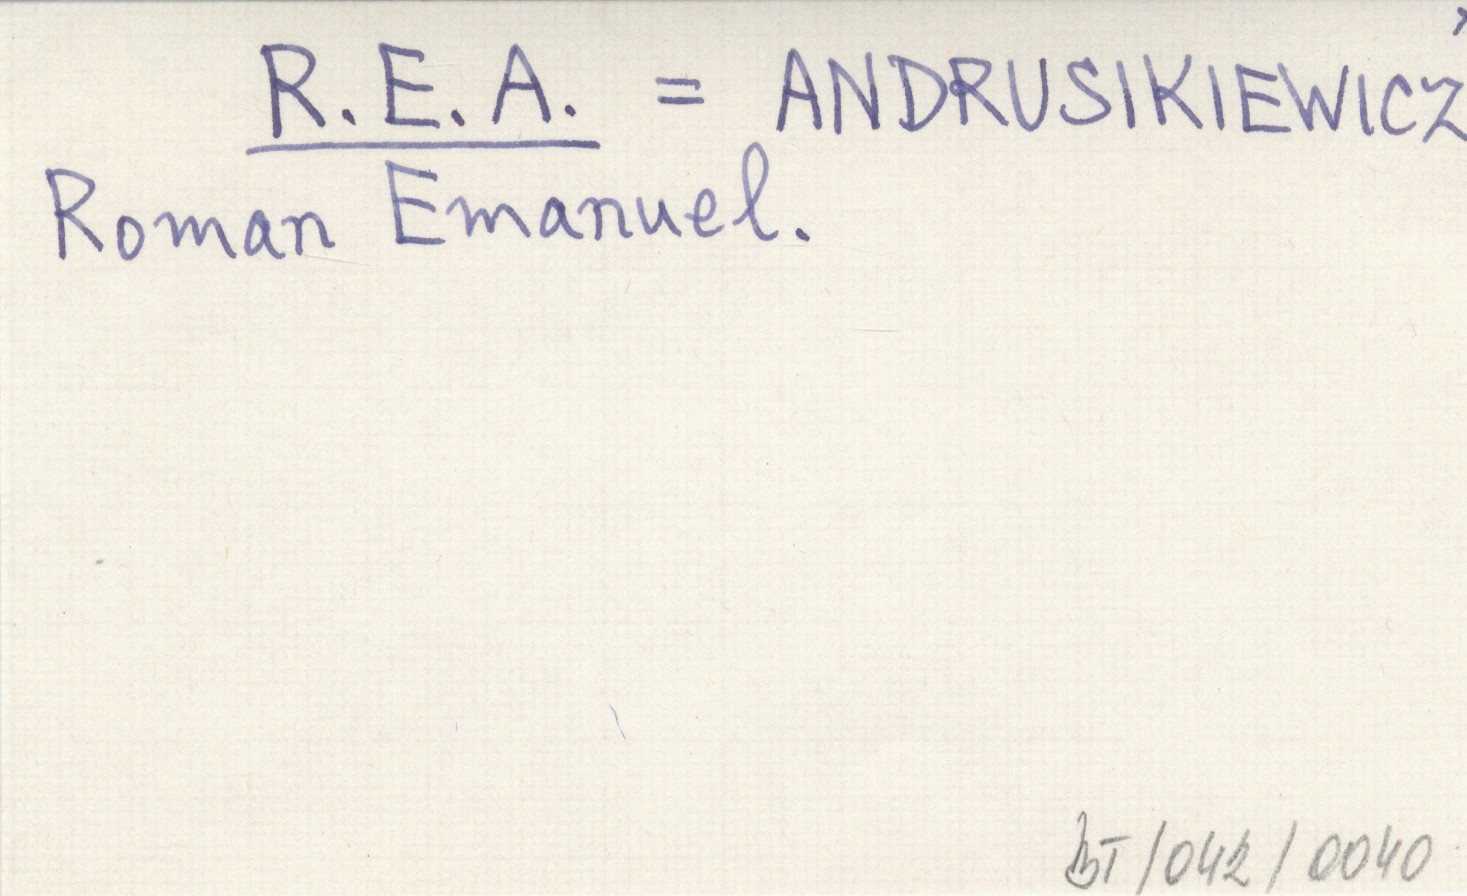 R.E.A. = ANDRUSIKIEWICZ
Roman Emanuel.
BT/042/0040